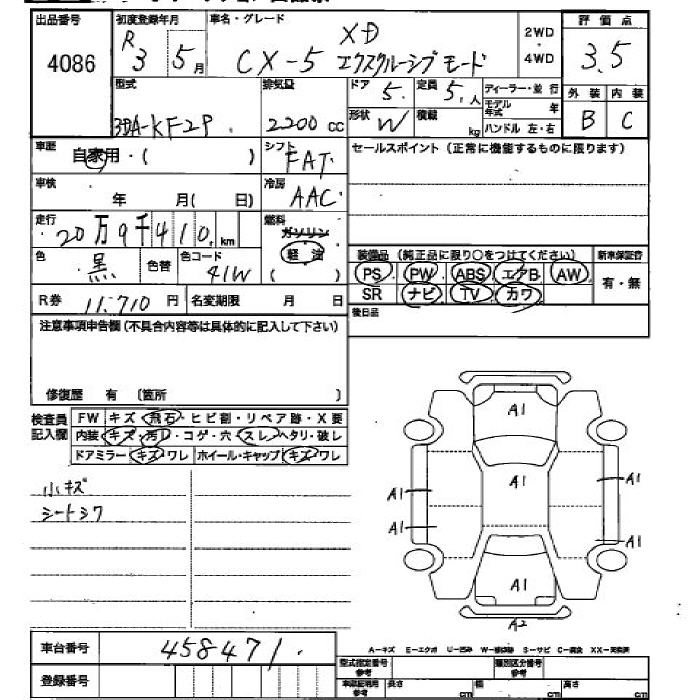 出品番号 初度登録年月 車名・グレード 2WD・4WD 評価点
4086 R3 5月 CX-5 XD エクスクルーシブモード 3.5
型式 排気量 ドア 5. 定員 5.人 ディーラー・並行 外装 内装
3DA-KF2P 2200cc 形状 W 積載 kg モデル年式 年 ハンドル 左・右 B C
車歴 自家用・( ) シフト FAT セールスポイント (正常に機能するものに限ります)
車検 年 月( 日) 冷房 AAC
走行 20万9千410km 燃料 ガソリン 軽油
色 黒 色替 色コード 41W 装備品 (純正品に限り○をつけてください) 新車保証書
PS PW ABS エアB AW 有・無
SR ナビ TV カワ
R券 11,710円 名変期限 月 日
後日品
注意事項申告欄(不具合内容等は具体的に記入して下さい)
修復歴 有 〔箇所 〕
検査員記入欄 FW キズ・飛石・ヒビ割・リペア跡・X要
内装 キズ・汚れ・コゲ・穴・スレ・ヘタリ・破レ
ドアミラー キズ・ワレ ホイール・キャップ キズ・ワレ
小キズ
シートシワ
A1
A1
A1 A1
A1 A1
A1
A2
車台番号 458471
登録番号
A-キズ E-エクボ U-凹み W-補修跡 S-サビ C-腐食 XX-交換済
型式指定番号 参考 類別区分番号 参考
車検証明用 参考 長さ cm 幅 cm 高さ cm